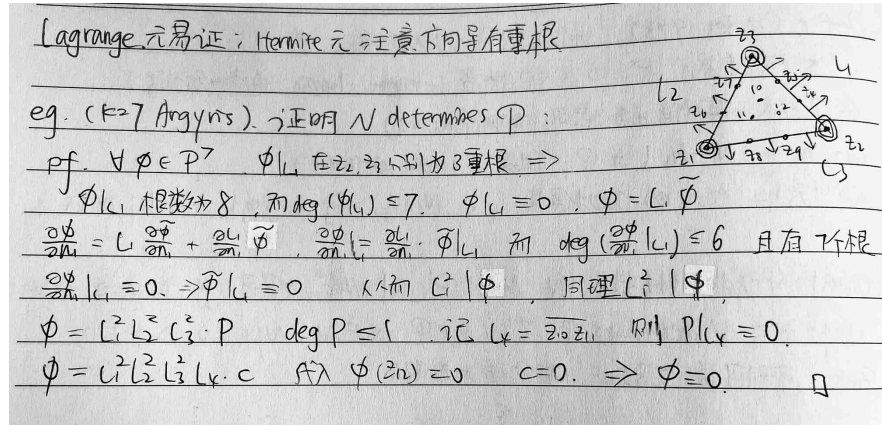 Lagrange 元易证; Hermite 元注意方向导有重根
eg. (k=7 Argyris). 证明 N determines P :
pf. ∀ φ ∈ P⁷, φ|L₁ 在 z₂, z₃ 分别为3重根 ⇒
φ|L₁ 根数为 8, 而 deg(φ|L₁) ≤ 7. φ|L₁ ≡ 0. φ = L₁ φ̃
∂φ/∂n₁ = L₁ ∂φ̃/∂n₁ + ∂L₁/∂n₁ φ̃. ∂φ/∂n₁|L₁ = ∂L₁/∂n₁ · φ̃|L₁ 而 deg(∂φ/∂n₁|L₁) ≤ 6 且有 7个根
∂φ/∂n₁|L₁ ≡ 0. ⇒ φ̃|L₁ ≡ 0 从而 L₁² | φ. 同理 Lᵢ² | φ.
φ = L₁² L₂² L₃² · P deg P ≤ 1. 记 L₄ = z₁₀z₁₁ 则 P|L₄ ≡ 0.
φ = L₁² L₂² L₃² L₄ · c 代入 φ(z₁₂) = 0 c = 0. ⇒ φ ≡ 0. □
z₃
L₂
L₁
z₇
10
z₅
z₄
z₆
11
12
z₁
z₈
z₉
z₂
L₃